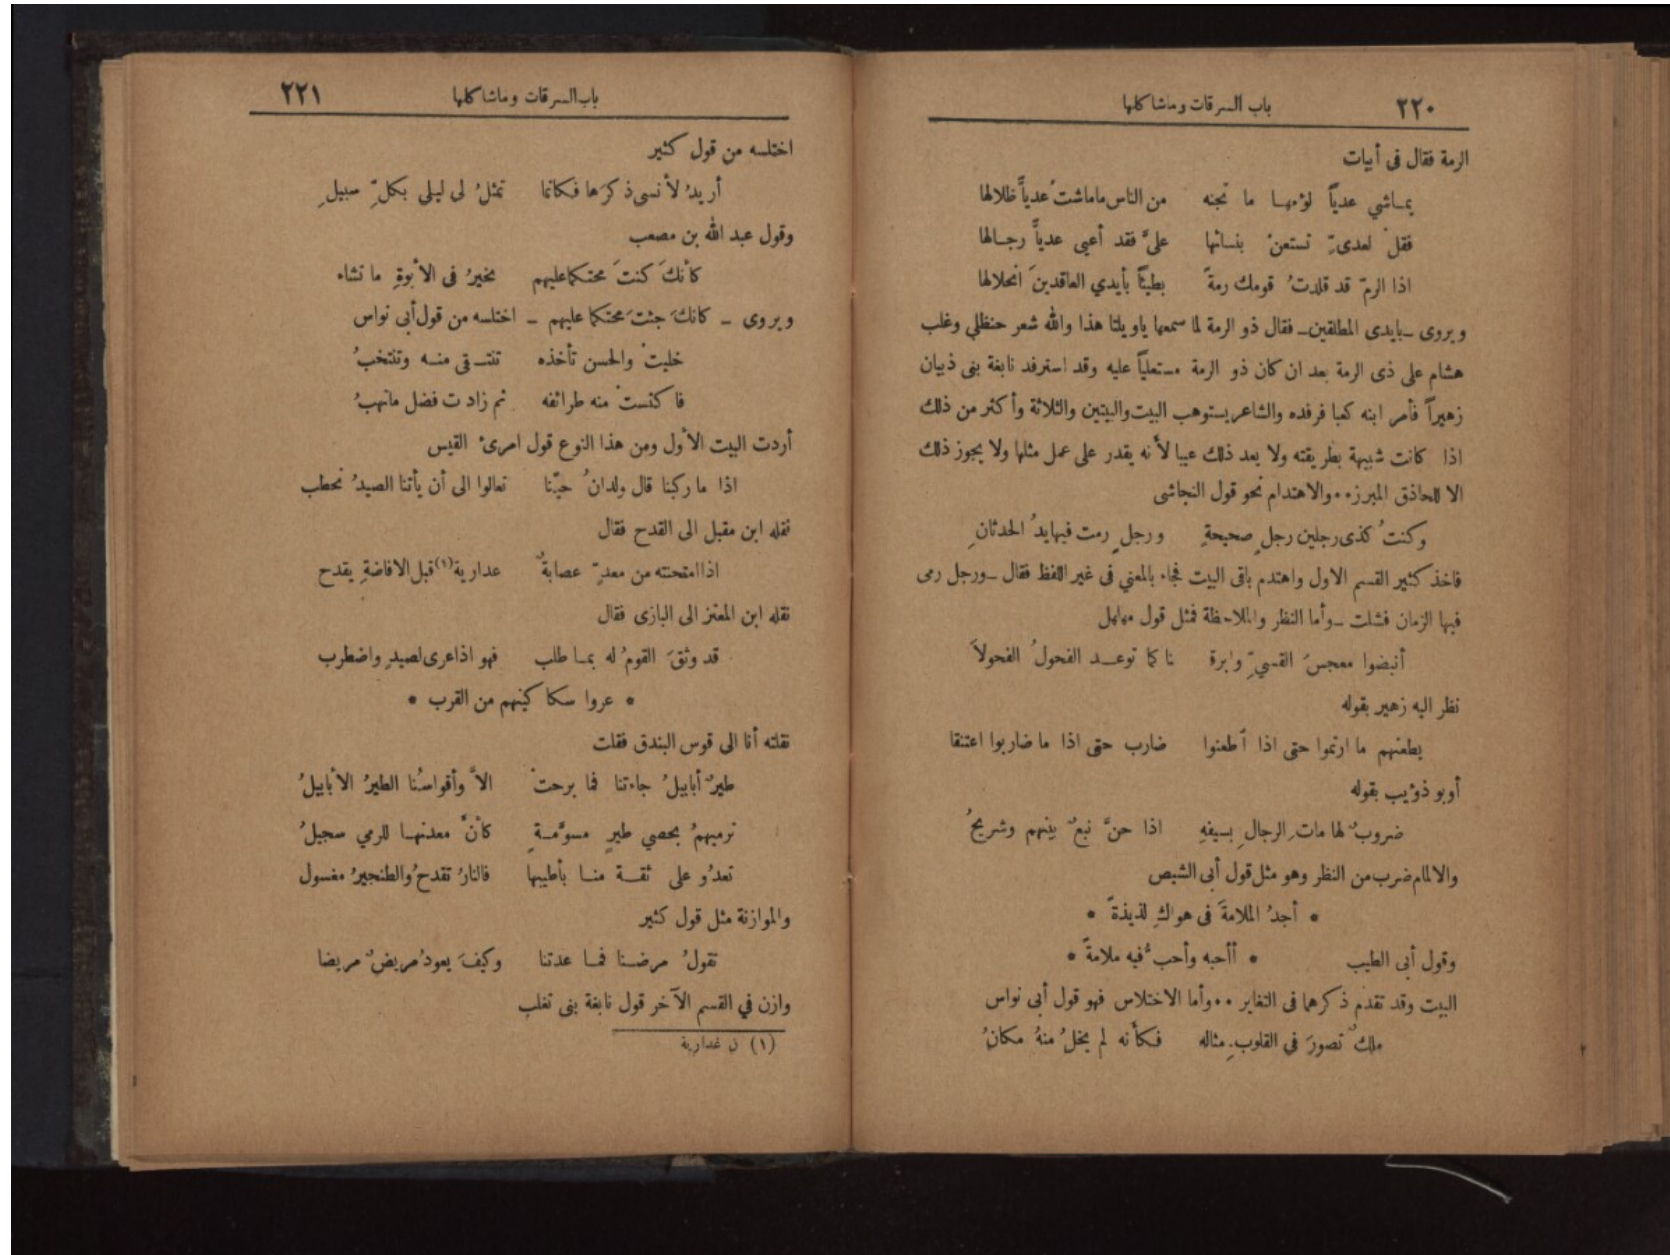 ٢٢٠ باب السرقات وماشاكلها
الرمة فقال فى أبيات
يمـاشي عدياً لؤمهـا ما تجنه من الناس ماماشتْ عدياً ظلالها
فقلْ لعدىّ تستعنْ بنسائها علىَّ فقد أعيى عدياً رجـالها
اذا الرمّ قد قلدتُ قومك رمةً بطيئاً بأيدي العاقدينَ انحلالها
ويروى ــ بايدى المطلقين ــ فقال ذو الرمة لما سمعها ياويلتا هذا والله شعر حنظلي وغلب
هشام على ذى الرمة بعد ان كان ذو الرمة مستعلياً عليه وقد استرفد نابغة بنى ذبيان
زهيراً فأمر ابنه كعبا فرفده والشاعر يستوهب البيت والبيتين والثلاثة وأكثر من ذلك
اذا كانت شبيهة بطريقته ولا يعد ذلك عيبا لأنه يقدر على عمل مثلها ولا يجوز ذلك
الا للحاذق المبرز ٠٠ والاهتدام نحو قول النجاشى
وكنتُ كذى رجلين رجلٍ صحيحةٍ ورجلٍ رمت فيهايدُ الحدثانِ
فاخذ كثير القسم الاول واهتدم باقى البيت فجاء بالمعني فى غير اللفظ فقال ــ ورجل رمى
فيها الزمان فشلت ــ وأما النظر والملاحظة فمثل قول مهلهل
أنبضوا معجسَ القسيِّ وابرة نا كما توعـد الفحولُ الفحولاَ
نظر اليه زهير بقوله
يطعنهم ما ارتموا حتى اذا ٱطعنوا ضارب حتى اذا ما ضاربوا اعتنقا
أوبو ذؤيب بقوله
ضروبٌ لهامات الرجالِ بسيفهِ اذا حنَّ نبعٌ بينهم وشريجُ
والالمام ضرب من النظر وهو مثل قول أبى الشيص
* أجدُ الملامةَ فى هواكِ لذيذةً *
وقول أبى الطيب * أأحبه وأحبُّ فيه ملامةً *
البيت وقد تقدم ذكرهما فى التغاير ٠٠ وأما الاختلاس فهو قول أبى نواس
ملكٌ تصورَ في القلوبِ مثاله فكأنه لم يخلُ منهُ مكانُ
باب السرقات وماشاكلها ٢٢١
اختلسه من قول كثير
أريدُ لأنسى ذكرَها فكانما تمثلُ لى ليلى بكلِّ سبيلِ
وقول عبد الله بن مصعب
كأنكَ كنتَ محتكماعليهم تخيرُ فى الأبوةِ ما تشاء
ويروى ــ كانكَ جئتَ محتكما عليهم ــ اختلسه من قول أبى نواس
خليتْ والحسن تأخذه تنتـقى منـه وتنتخبُ
فاكتستْ منه طرائفه ثم زادت فضل ماتهبُ
أردت البيت الأول ومن هذا النوع قول امرئ القيس
اذا ما ركبنا قال ولدانُ حيّنا تعالوا الى أن يأتنا الصيدُ نحطب
نقله ابن مقبل الى القدح فقال
اذا امتحنته من معدٍّ عصابةٌ عدارية(١) قبل الافاضةِ يقدح
نقله ابن المعتز الى البازى فقال
قد وثقَ القومُ له بمـا طلب فهو اذاعرى لصيدٍ واضطرب
* عروا سكاكينهم من القرب *
نقلته أنا الى قوس البندق فقلت
طيرٌ أبابيلُ جاءتنا فما برحتْ الاَّ وأقواسُنا الطيرُ الأبابيلُ
نرميهمُ بحصي طيرٍ مسوَّمـةٍ كأنَّ معدنهـا للرمي سجيلُ
تعدُو على ثقـة منـا بأطيبها فالنارُ تقدحُ والطنجيرُ مغسول
والموازنة مثل قول كثير
تقولُ مرضـنا فمـا عدتنا وكيفَ يعودُ مريضٌ مريضا
وازن في القسم الآخر قول نابغة بنى تغلب
(١) ن غدارية